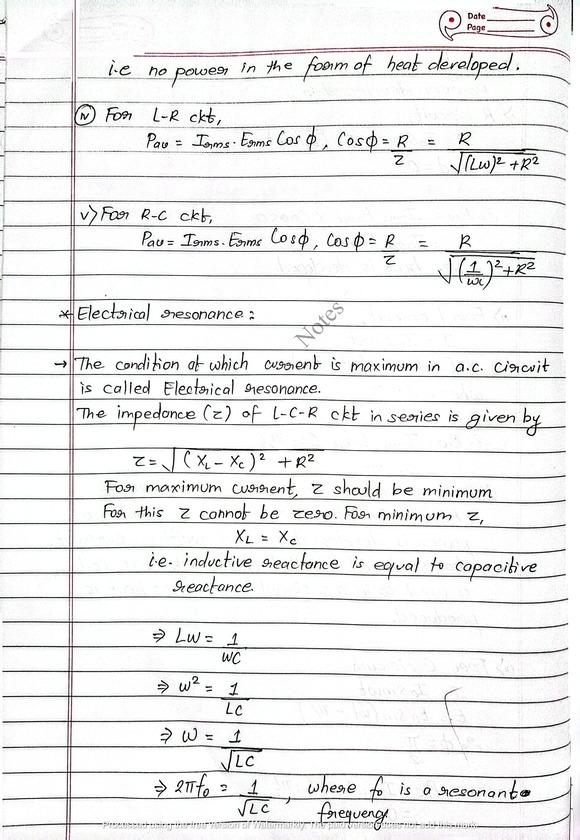 Date
Page
i.e no power in the form of heat developed.
iv) For L-R ckt,
Pav = Irms. Erms Cosϕ, Cosϕ = R/Z = R/√((Lω)² + R²)
v) For R-C ckt,
Pav = Irms. Erms Cosϕ, Cosϕ = R/Z = R/√((1/ωc)² + R²)
* Electrical resonance :
Notes
→ The condition at which current is maximum in a.c. circuit
is called Electrical resonance.
The impedance (z) of L-C-R ckt in series is given by
z = √((XL - Xc)² + R²)
For maximum current, z should be minimum
For this z cannot be zero. For minimum z,
XL = Xc
i.e. inductive reactance is equal to capacitive
reactance.
⇒ Lω = 1/ωC
⇒ ω² = 1/LC
⇒ ω = 1/√LC
⇒ 2πf₀ = 1/√LC, where f₀ is a resonant
frequency
Processed using the free version of Watermarkly. The paid version does not add this mark.